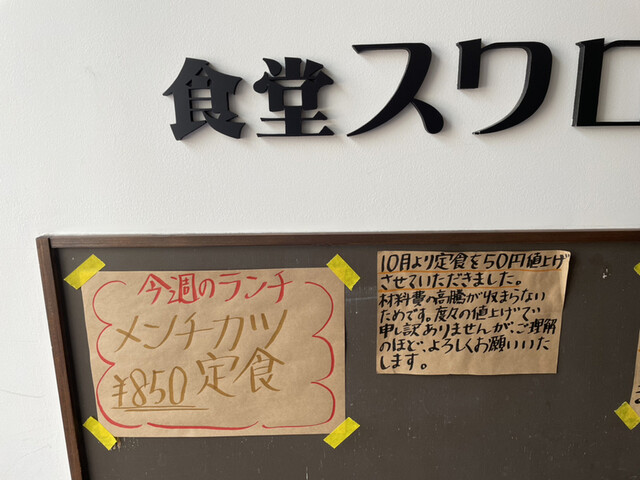 食堂スワロ
今週のランチ
メンチカツ
¥850定食
10月より定食を50円値上げ
させていただきました。
材料費へ高騰が収まらない
ためです。度々の値上げでい
申し訳ありませんが、ご理解
のほど、よろしくお願いいた
します。